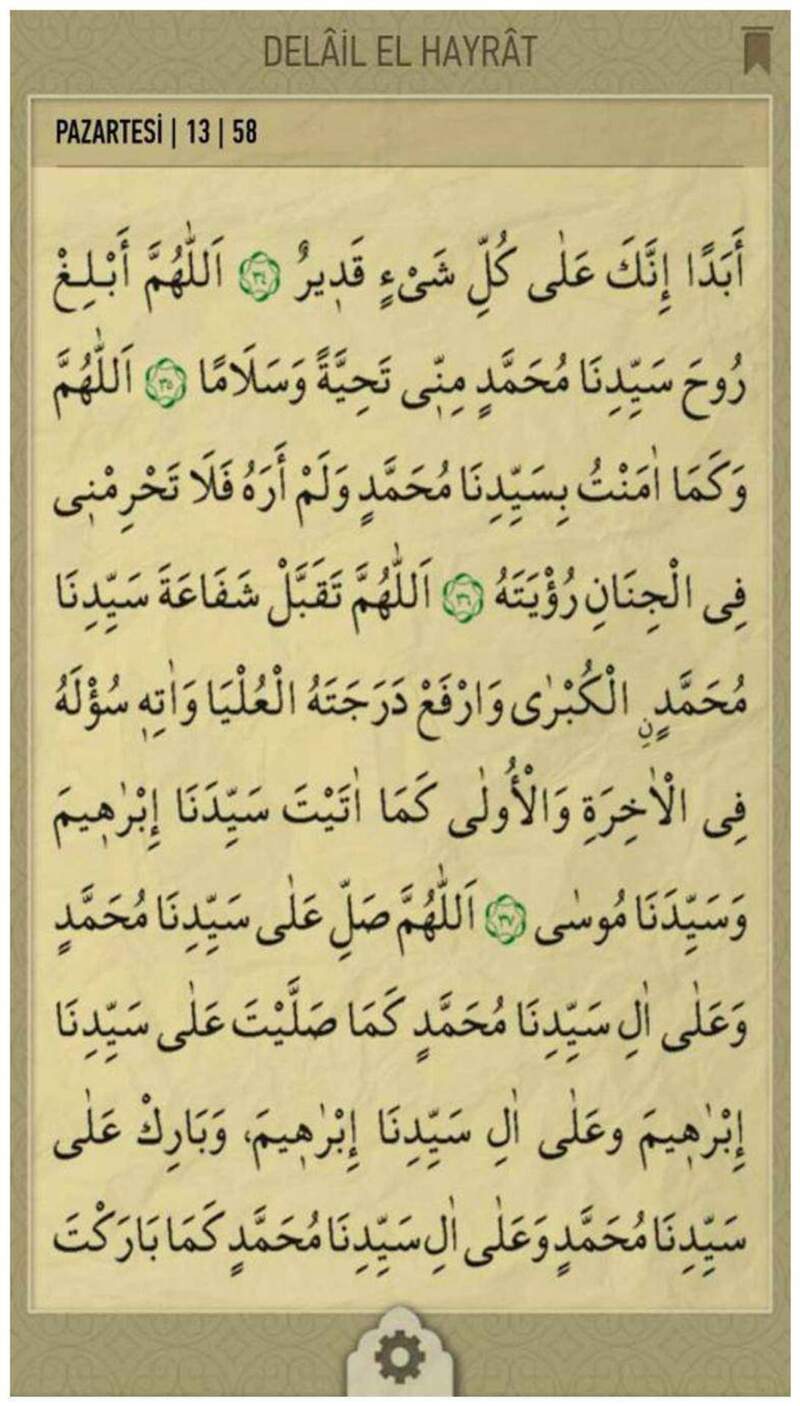 DELÂİL EL HAYRÂT
PAZARTESİ | 13 | 58
أَبَدًا إِنَّكَ عَلٰى كُلِّ شَىْءٍ قَدٖيرٌ ﴿٣٤﴾ اَللّٰهُمَّ أَبْلِغْ
رُوحَ سَيِّدِنَا مُحَمَّدٍ مِنّٖى تَحِيَّةً وَسَلَامًا ﴿٣٥﴾ اَللّٰهُمَّ
وَكَمَا اٰمَنْتُ بِسَيِّدِنَا مُحَمَّدٍ وَلَمْ أَرَهُ فَلَا تَحْرِمْنٖى
فِى الْجِنَانِ رُؤْيَتَهُ ﴿٣٦﴾ اَللّٰهُمَّ تَقَبَّلْ شَفَاعَةَ سَيِّدِنَا
مُحَمَّدٍ نِ الْكُبْرٰى وَارْفَعْ دَرَجَتَهُ الْعُلْيَا وَاٰتِهٖ سُؤْلَهُ
فِى الْاٰخِرَةِ وَالْأُولٰى كَمَا اٰتَيْتَ سَيِّدَنَا إِبْرٰهٖيمَ
وَسَيِّدَنَا مُوسٰى ﴿٣٧﴾ اَللّٰهُمَّ صَلِّ عَلٰى سَيِّدِنَا مُحَمَّدٍ
وَعَلٰى اٰلِ سَيِّدِنَا مُحَمَّدٍ كَمَا صَلَّيْتَ عَلٰى سَيِّدِنَا
إِبْرٰهٖيمَ وعَلٰى اٰلِ سَيِّدِنَا إِبْرٰهٖيمَ، وَبَارِكْ عَلٰى
سَيِّدِنَا مُحَمَّدٍ وَعَلٰى اٰلِ سَيِّدِنَا مُحَمَّدٍ كَمَا بَارَكْتَ